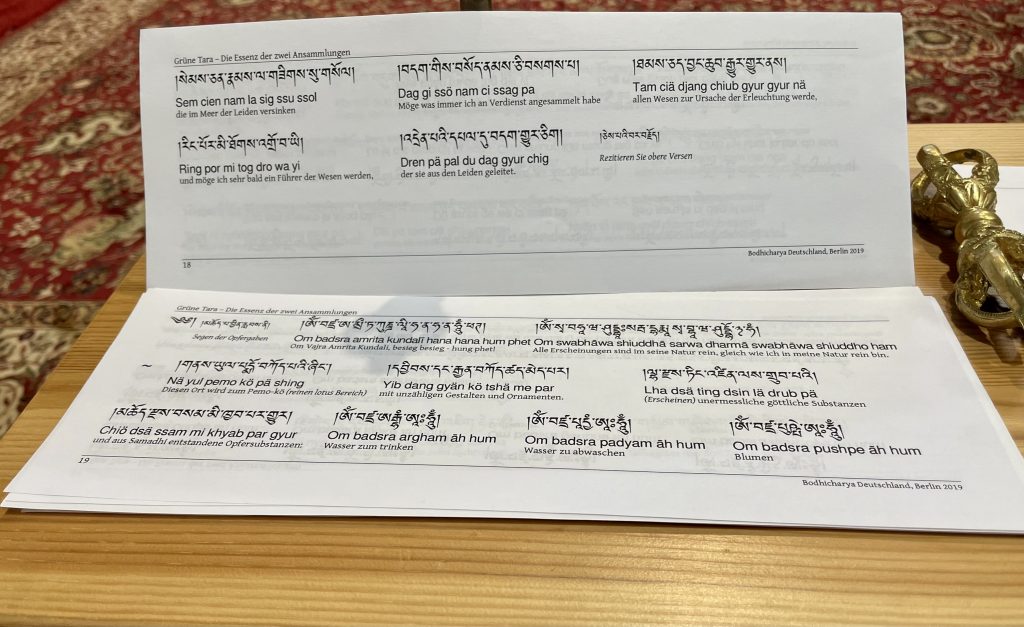 Grüne Tara – Die Essenz der zwei Ansammlungen
།སེམས་ཅན་རྣམས་ལ་གཟིགས་སུ་གསོལ། །བདག་གིས་བསོད་ནམས་ཅི་བསགས་པ། །ཐམས་ཅད་བྱང་ཆུབ་རྒྱུར་གྱུར་ནས།
Sem cien nam la sig ssu ssol Dag gi ssö nam ci ssag pa Tam ciä djang chiub gyur gyur nä
die im Meer der Leiden versinken Möge was immer ich an Verdienst angesammelt habe allen Wesen zur Ursache der Erleuchtung werde,
།རིང་པོར་མི་ཐོགས་འགྲོ་བ་ཡི། །འདྲེན་པའི་དཔལ་དུ་བདག་གྱུར་ཅིག །ཅེས་པའི་བར་བརྗོད།
Ring por mi tog dro wa yi Dren pä pal du dag gyur chig Rezitieren Sie obere Versen
und möge ich sehr bald ein Führer der Wesen werden, der sie aus den Leiden geleitet.
18 Bodhicharya Deutschland, Berlin 2019
Grüne Tara – Die Essenz der zwei Ansammlungen
།མཆོད་པ་བྱིན་རླབས་ནི། །ཨོཾ་བཛྲ་ཨ་མྲྀ་ཏ་ཀུཎྜ་ལཱི་ཧ་ན་ཧ་ན་ཧཱུྃ་ཕཊ།
Segen der Opfergaben Om badsra amrita kundalî hana hana hum phet Om swabhāwa shiuddhā sarwa dharmā swabhāwa shiuddho ham
Om Vajra Amrita Kundali, besieg besieg - hung phet! Alle Erscheinungen sind im seine Natur rein, gleich wie ich in meine Natur rein bin.
~ །གནས་ཡུལ་པདྨོ་བཀོད་པའི་ཞིང་། །དབྱིབས་དང་རྒྱན་བཀོད་ཚད་མེད་པར། །ལྷ་རྫས་ཏིང་འཛིན་ལས་གྲུབ་པའི།
Nä yul pemo kö pä shing Yib dang gyän kö tshä me par Lha dsä ting dsin lä drub pä
Diesen Ort wird zum Pemo-kö (reinen lotus Bereich) mit unzähligen Gestalten und Ornamenten. (Erscheinen) unermessliche göttliche Substanzen
།མཆོད་རྫས་བསམ་མི་ཁྱབ་པར་གྱུར། །ཨོཾ་བཛྲ་ཨརྒྷཾ་ཨཱཿཧཱུྃ། །ཨོཾ་བཛྲ་པཱདྱཾ་ཨཱཿཧཱུྃ། །ཨོཾ་བཛྲ་པུཥྤེ་ཨཱཿཧཱུྃ།
Chiö dsä ssam mi khyab par gyur Om badsra argham āh hum Om badsra padyam āh hum Om badsra pushpe āh hum
und aus Samadhi entstandene Opfersubstanzen: Wasser zum trinken Wasser zu abwaschen Blumen
19 Bodhicharya Deutschland, Berlin 2019